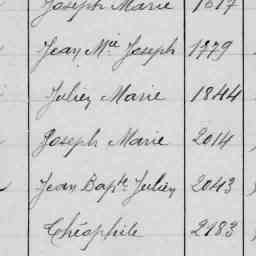 Joseph Marie 1617
Jean Mie Joseph 1779
Julien Marie 1844
Joseph Marie 2014
Jean Bapte Julien 2043
Théophile 2183